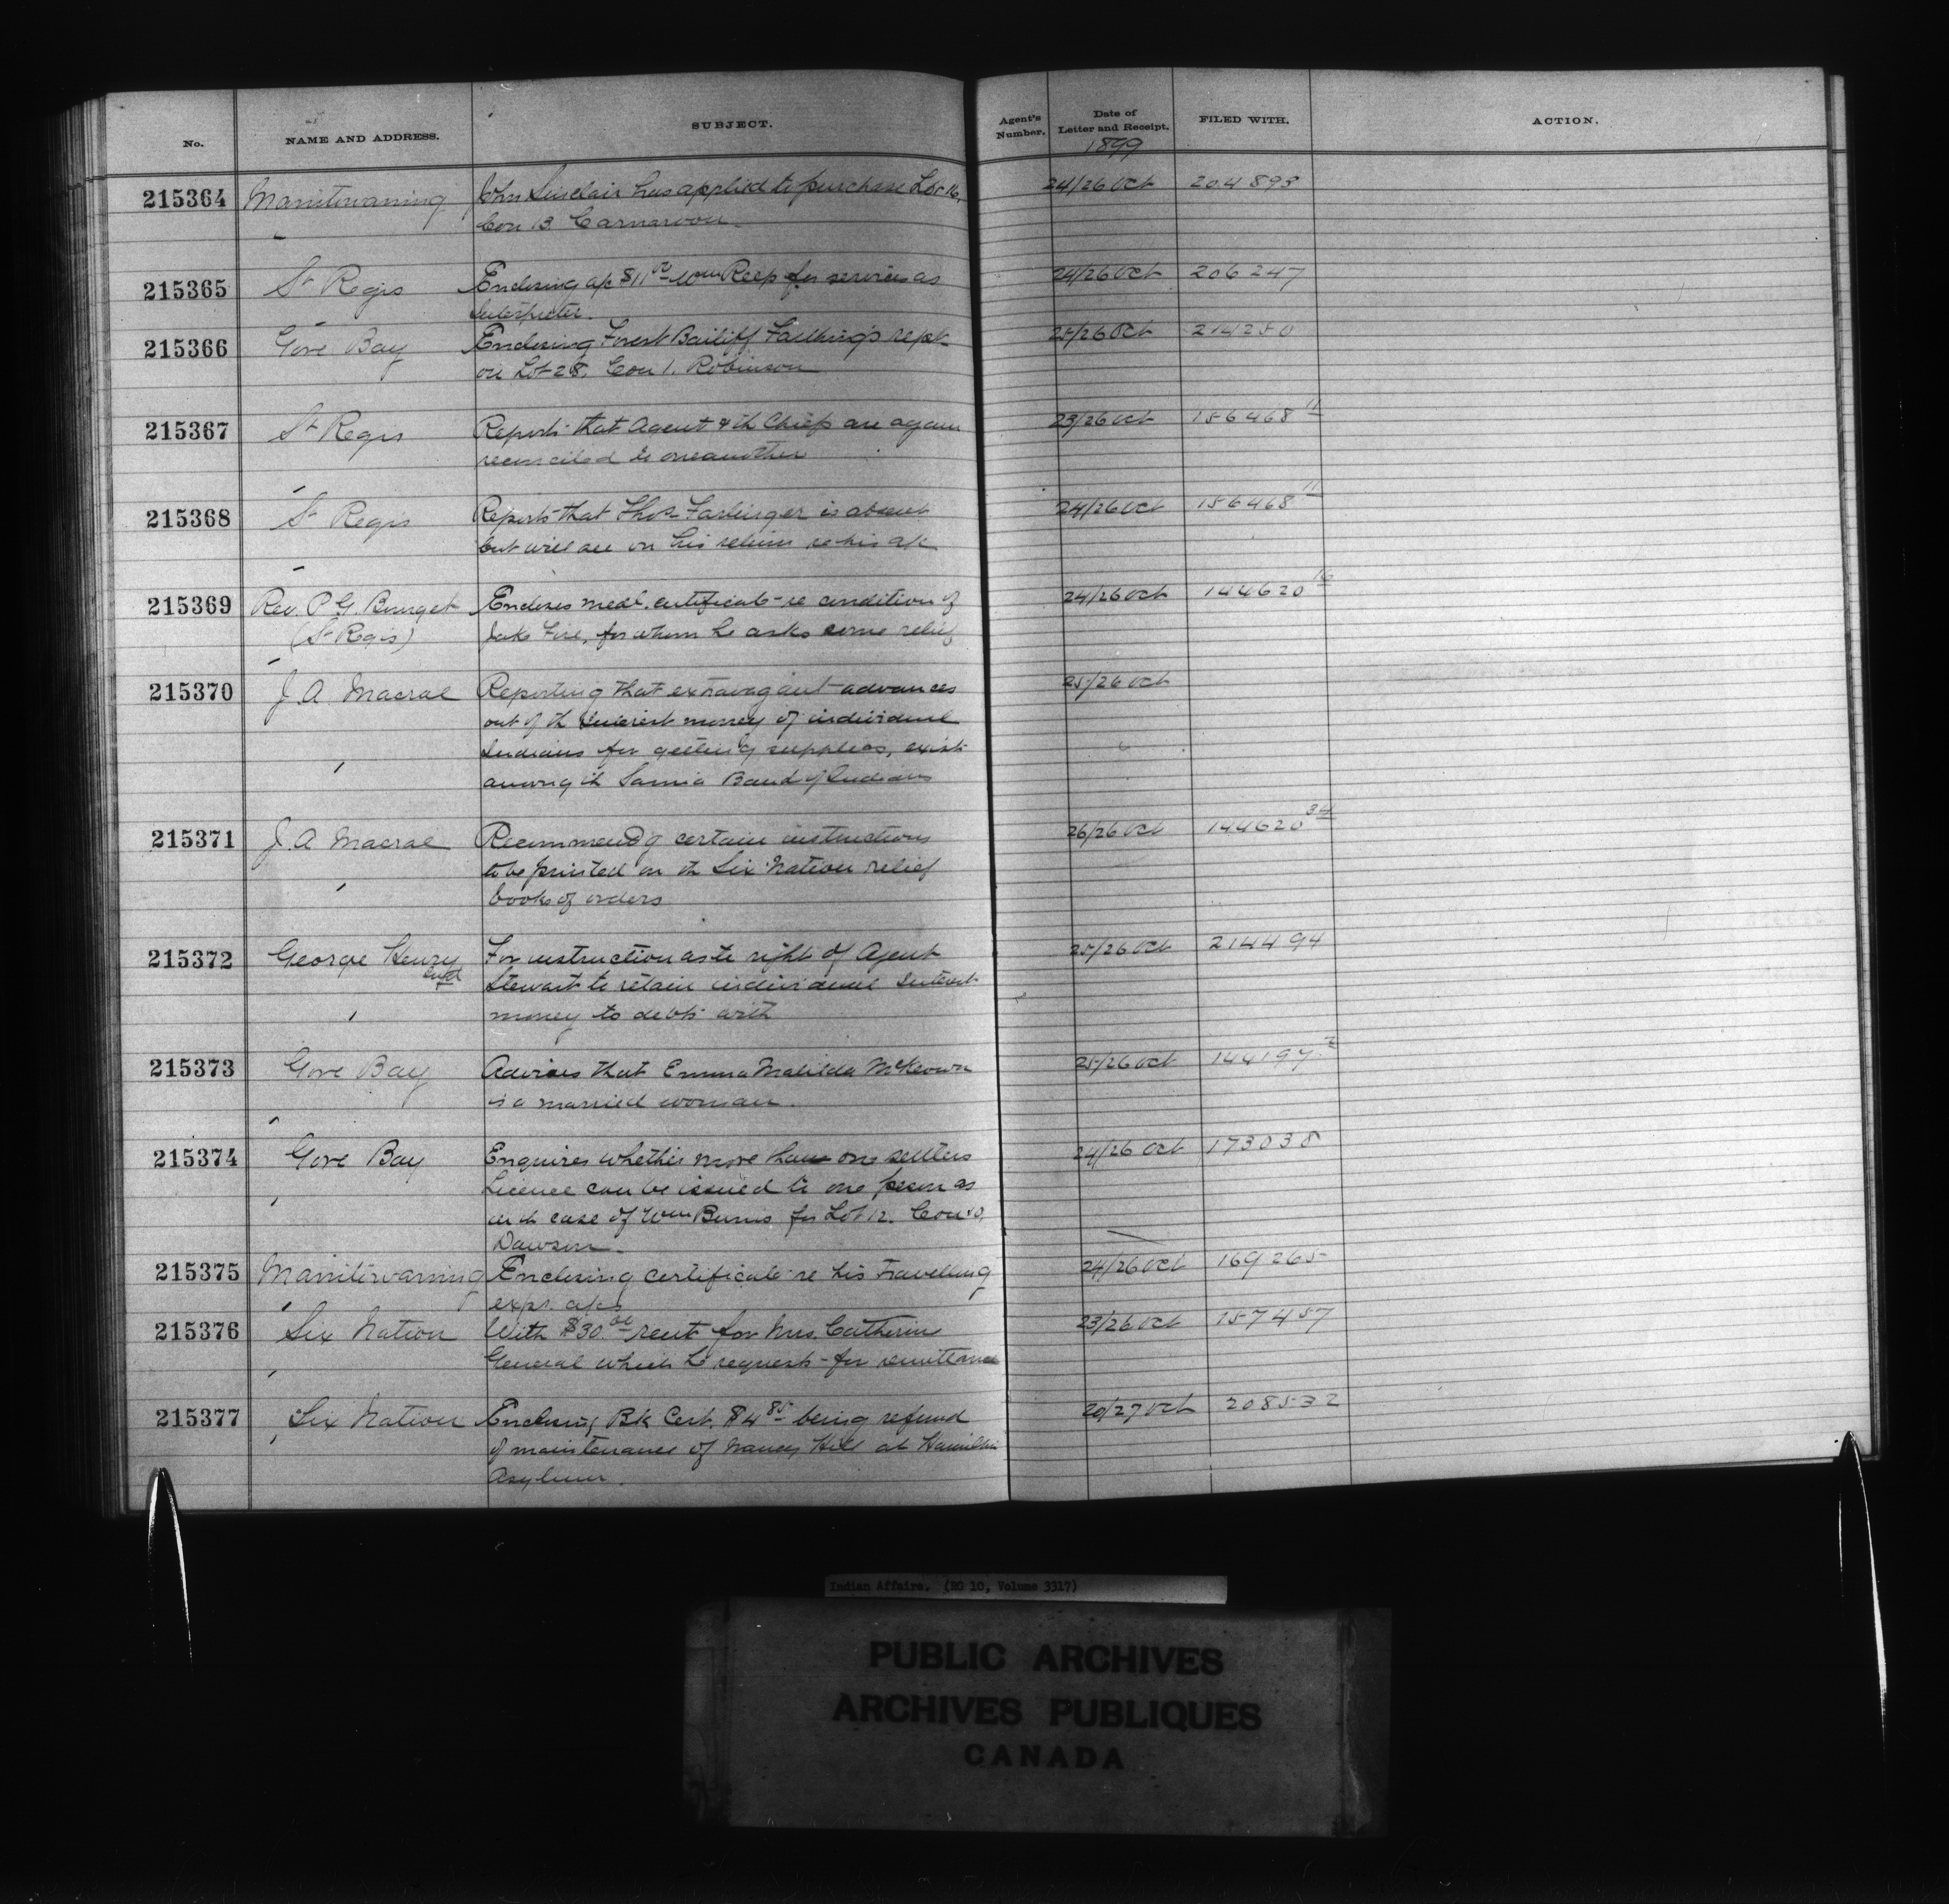 No. NAME AND ADDRESS. SUBJECT. Agent's Number. Date of Letter and Receipt. FILED WITH. ACTION.
1899
215364 Manitowaning John Sinclair has applied to purchase Lot 16, 24/26 Oct 204893
Con 13. Carnarvon
215365 St Regis Enclosing a/c $11 Wm Reep for services as 24/26 Oct 206247
Interpreter.
215366 Gore Bay Enclosing Forest Bailiff Falking's rept 25/26 Oct 214250
on Lot 28. Con 1. Robinson
215367 St Regis Reports that Agent & th Chiefs are again 23/26 Oct 156468 11
reconciled to oneanother
215368 St Regis Reports that Thos Farlinger is absent 24/26 Oct 156468 11
but will see on his return re his a/c
215369 Rev. P. G. Bourget Encloses medl. certificate re condition of 24/26 Oct 144620
(St Regis) Jake Fire, for whom he asks some relief
215370 J. A. Macrae Reporting that extravagant advances 25/26 Oct
out of th interest money of individual
Indians for getting supplies, exist
among th Sarnia Band of Indians
215371 J. A Macrae Recommendg certain instructions 26/26 Oct 144620 34
to be printed on th Six Nation relief
books of orders
215372 George Henry For instruction as to right of Agent 25/26 Oct 214494
Stewart to retain individual Interest
money to debts with
215373 Gore Bay Advises that Emma Matilda McKeown 25/26 Oct 144197
is a married woman.
215374 Gore Bay Enquires whether more than one settlers 24/26 Oct 173038
Licence can be issued to one person as
in th case of Wm Burns for Lot 12. Con 10,
Dawson.
215375 Manitowaning Enclosing certificate re his Travelling 24/26 Oct 169265
exps. a/cs
215376 Six Nation With $30.00 rent for Mrs. Catherine 23/26 Oct 157457
General which he requests for remittance
215377 Six Nation Enclosing Bk Cert. $4 85 being refund 20/27 Oct 208532
of maintenance of Nancy Hill at Hamilton
Asylum.
Indian Affairs. (RG 10, Volume 3317)
PUBLIC ARCHIVES
ARCHIVES PUBLIQUES
CANADA